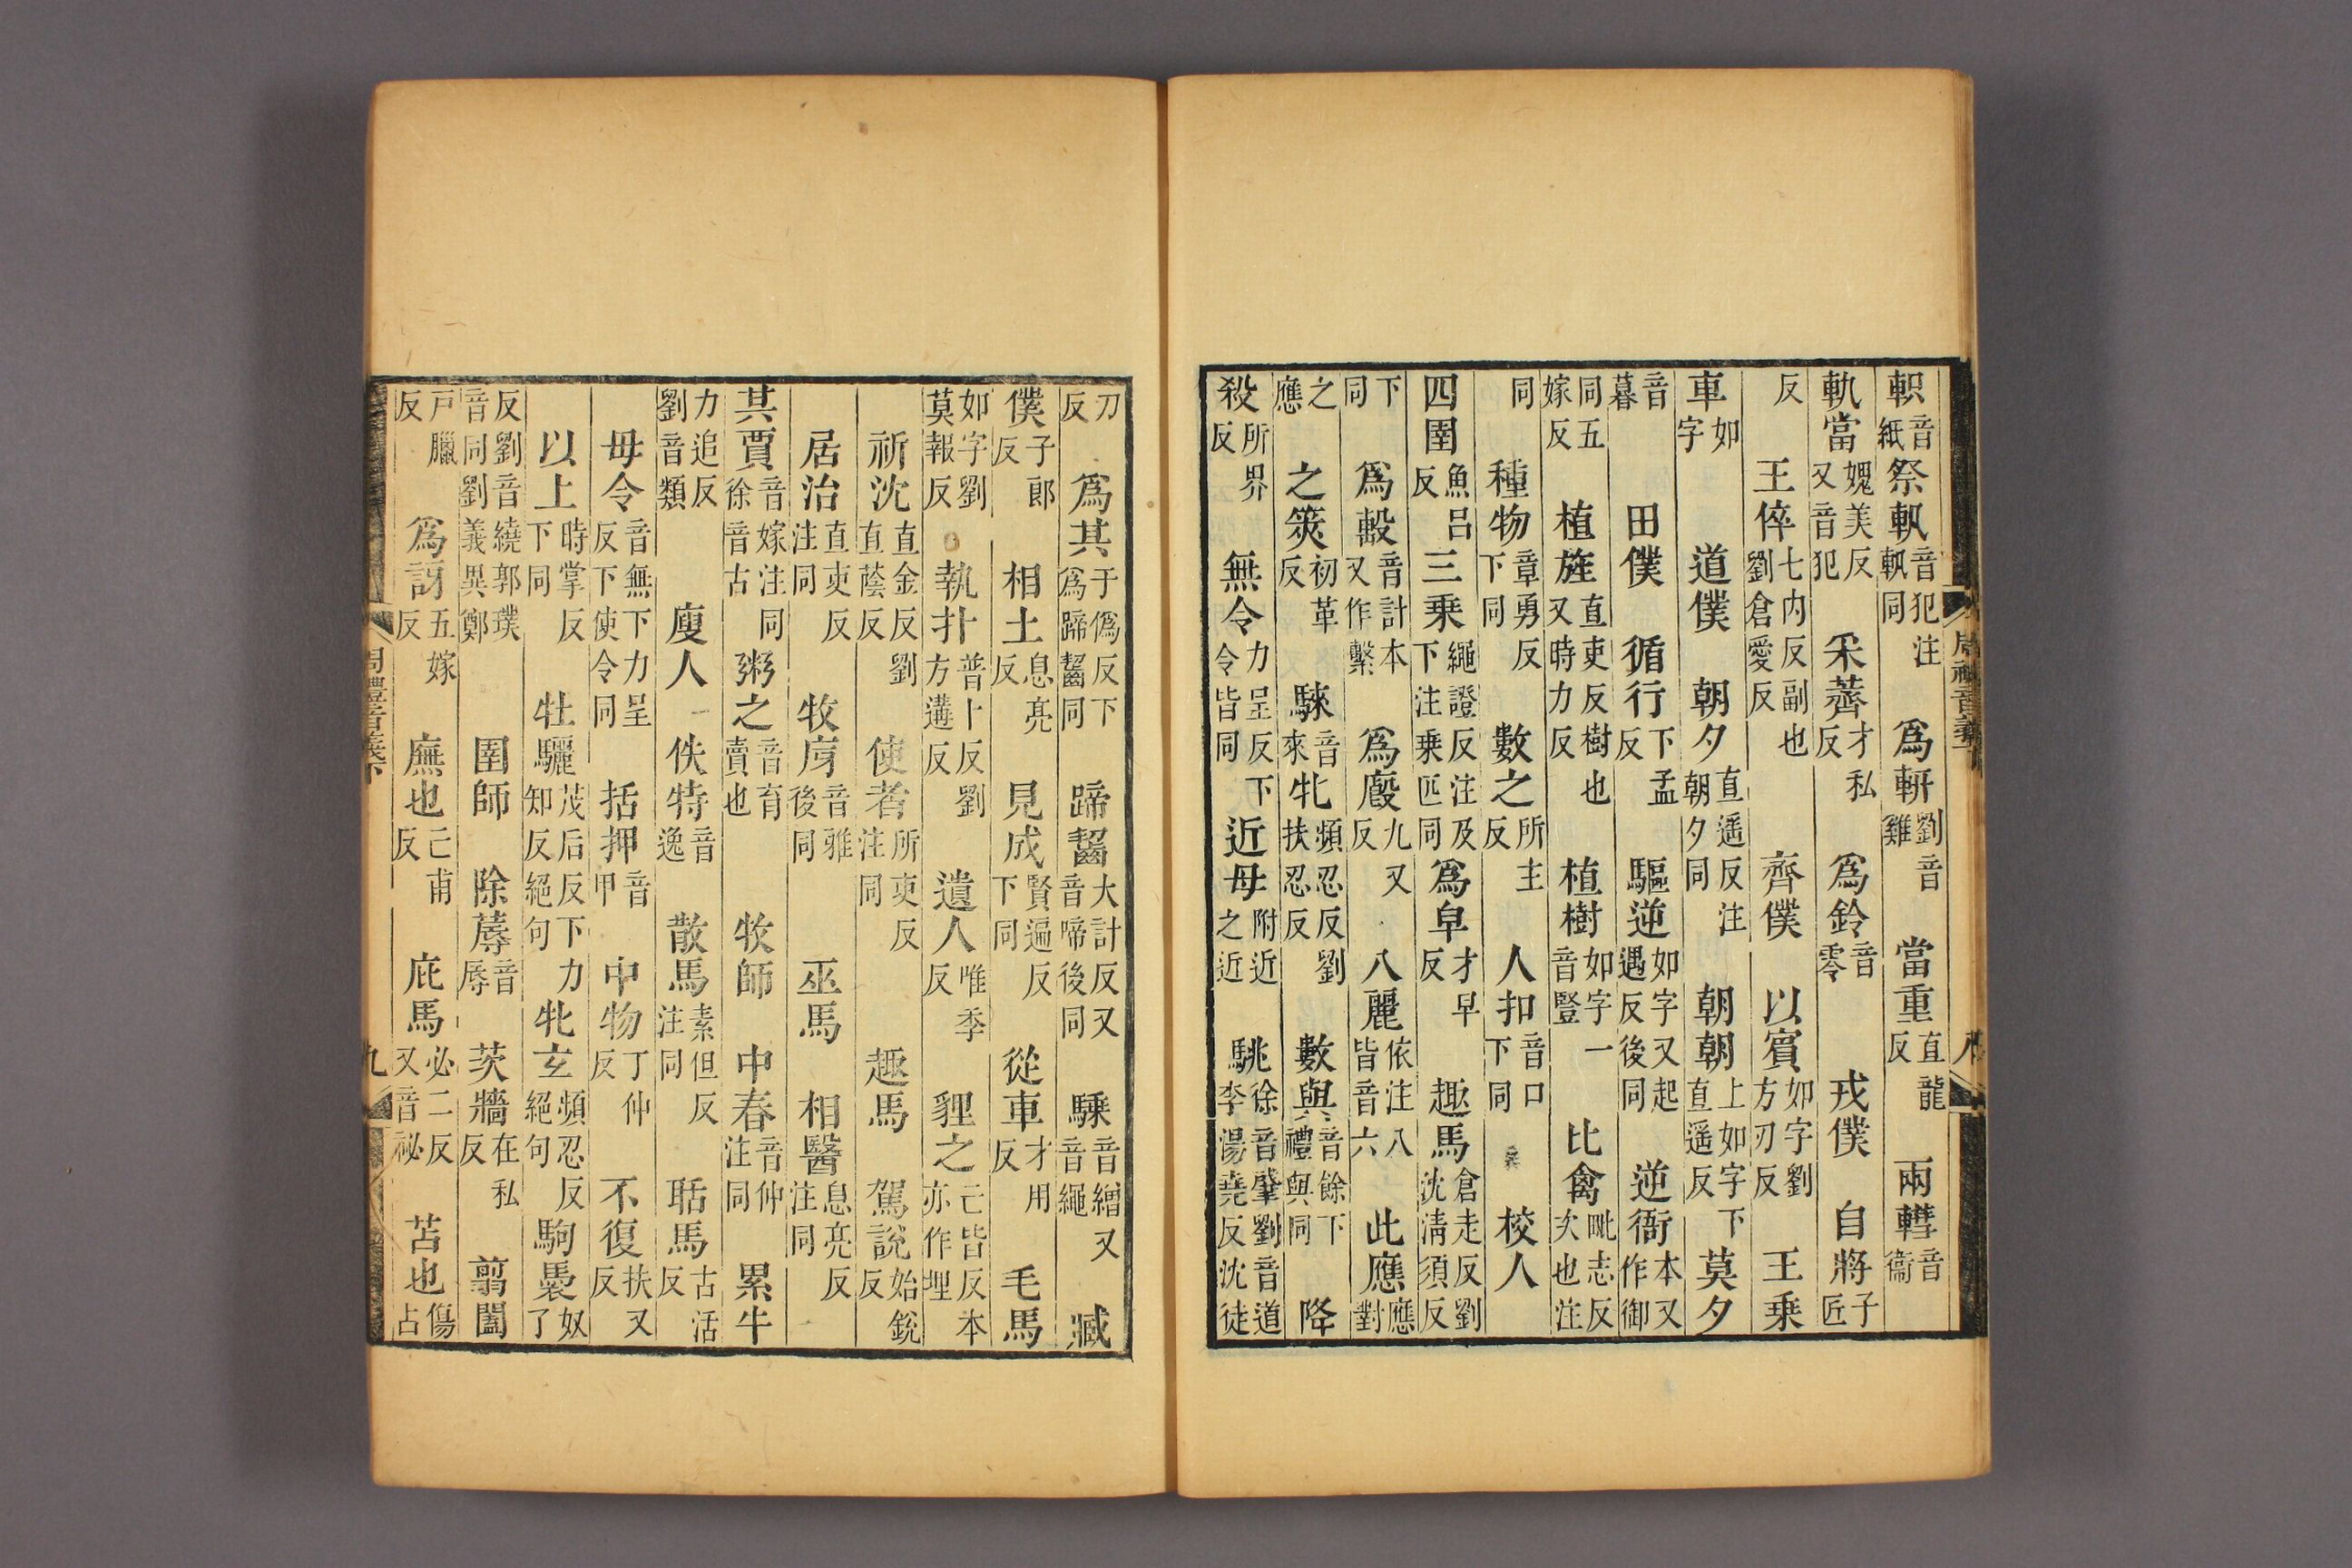 軹音紙祭軓音犯注軓同爲軒劉音雞當重直龍反兩轊音衞
軌當媿美反又音犯采薺才私反爲鈴音零戎僕自將子匠
反王倅七内反副也劉倉愛反齊僕以賓如字劉方刃反王乗
車如字道僕朝夕直遥反注朝夕同朝朝上如字下直遥反莫夕
音暮田僕循行下孟反驅逆如字又起遇反後同逆衙本又作御
同五嫁反植旌直吏反樹也又時力反植樹如字一音豎比禽毗志反注次也
同種物章勇反下同數之所主反人扣音口下同校人
四圉魚呂反三乗繩證反注及下注乗匹同爲皁才早反趣馬倉走反劉沈清須反
下同爲轚音計本又作繫爲廏九又反八麗依注八皆音六此應應對
之應之筴初革反騋音來牝頻忍反劉扶忍反數與音餘下禮與同降
殺所界反無令力呈反下令皆同近母附近之近駣徐音肇劉音道李湯堯反沈徒
刀反爲其于僞反下爲蹄齧同蹄齧大計反又音啼後同騬音繒又音繩臧
僕子郎反相土息亮反見成賢遍反下同從車才用反毛馬
如字劉莫報反執扑普卜反劉方遘反遺人唯季反貍之亡皆反本亦作埋
祈沈直金反劉直蔭反使者所吏反注同趣馬駕說始銳反
居治直吏反注同牧庌音雅後同巫馬相醫息亮反注同
其賈音嫁注同徐音古粥之音育賣也牧師中春音仲注同累牛
力追反劉音類廋人佚特音逸散馬素但反注同聒馬古活反
毋令音無下力呈反下使令同括押音甲中物丁仲反不復扶又反
以上時掌反下同牡驪茂后反下力知反絕句牝玄頻忍反絕句駒褭奴了
反劉音繞郭璞音同劉義異鄭圉師除蓐音辱茨牆在私反翦闔
戶臘反爲訝五嫁反廡也亡甫反庇馬必二反又音祕苫也傷占
九